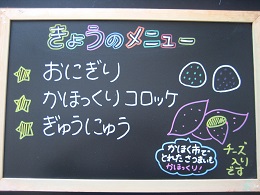 きょうのメニュー
おにぎり
かほっくりコロッケ
ぎゅうにゅう
かほく市で
とれたさつまいも
かほっくり!
チーズ
入り
です